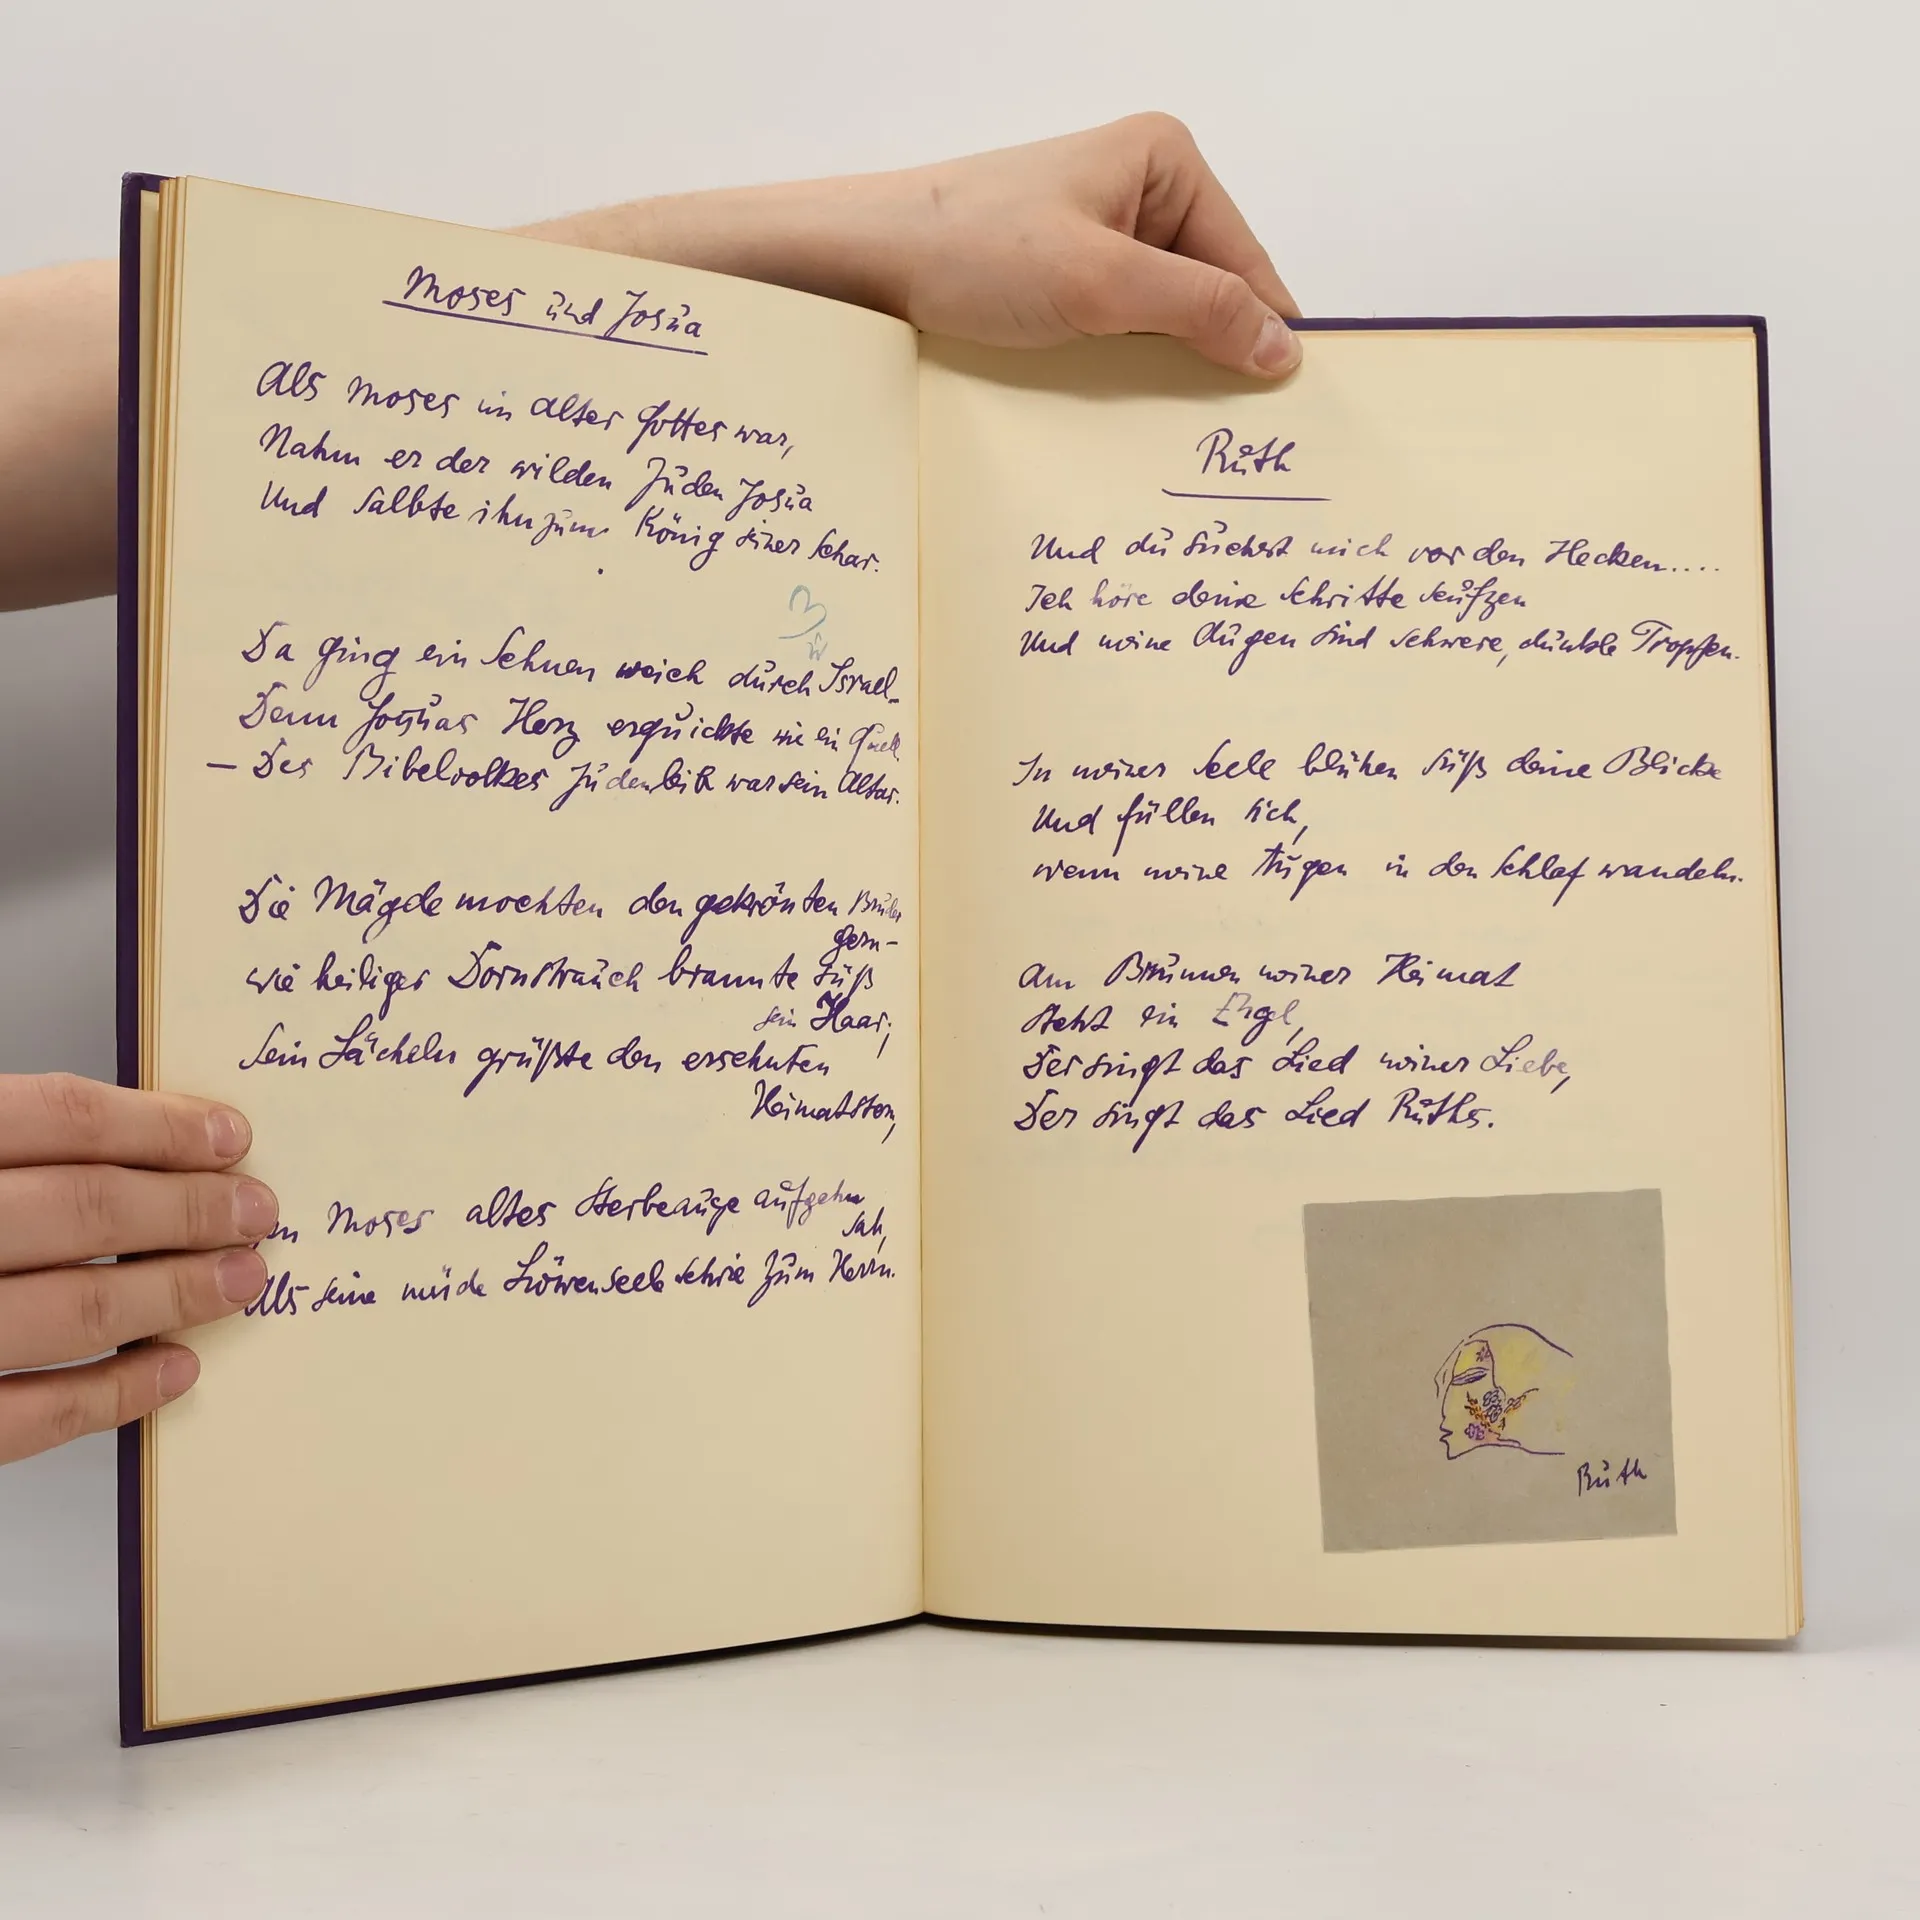 Moses und Josua
Als Moses im Alter Gottes war,
Nahm er der wilden Juden Josua
Und salbte ihn zum König seiner Schar.
Da ging ein Sehnen weich durch Israel_
Denn Josuas Herz erquickte wie ein Quell.
— Des Bibelvolkes Judenleib war sein Altar.
Die Mägde mochten den gekrönten Bruder
gern—
wie heiliger Dornstrauch brannte süß
sein Haar;
Sein Lächeln grüßte den ersehnten
Heimatstern,
Moses altes Sterbeauge aufgehn
sah,
Als seine müde Löwenseele schrie zum Herrn.
Ruth
Und du suchst mich vor den Hecken....
Ich höre deine Schritte seufzen
Und meine Augen sind schwere, dunkle Tropfen.
In meiner Seele blühen süß deine Blicke
Und füllen sich,
wenn meine Augen in den Schlaf wandeln.
Am Brunnen meiner Heimat
steht ein Engel,
Der singt das Lied meiner Liebe,
Der singt das Lied Ruths.
Ruth